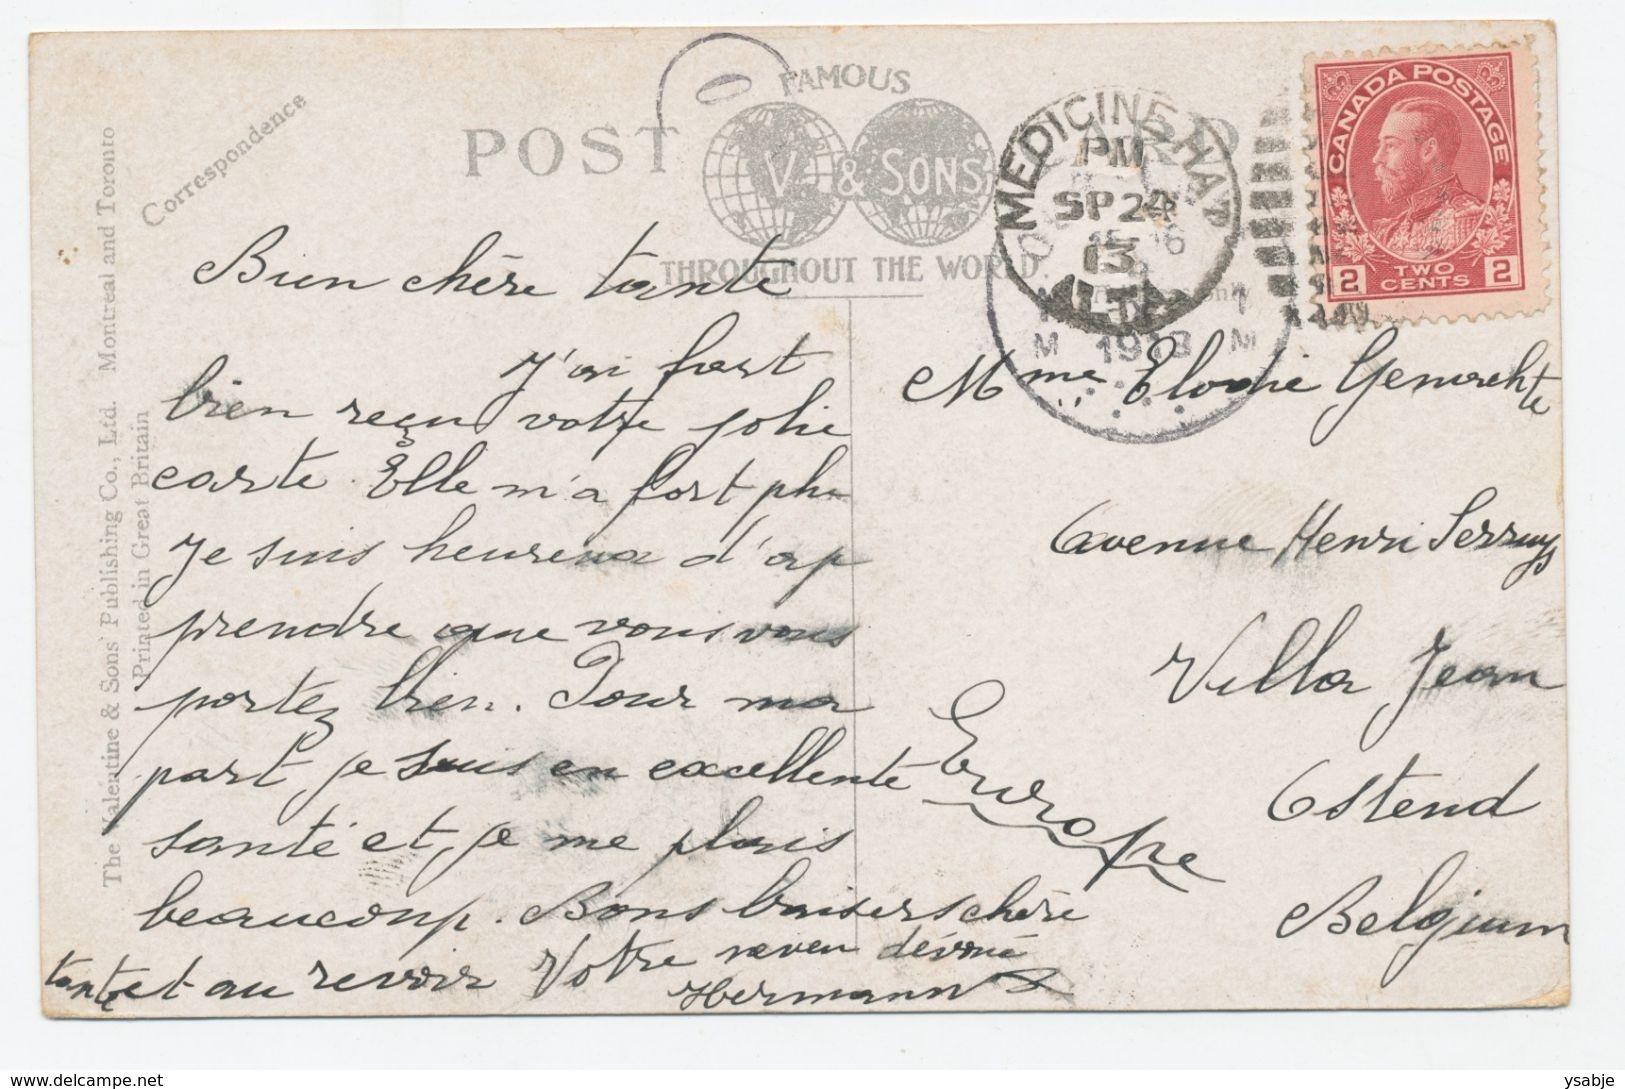 Correspondence
POST CARD
FAMOUS
V. & SONS
THROUGHOUT THE WORLD.
MEDICINE HAT
PM
SP 24
13
ALTA
1913
M M
CANADA POSTAGE
2 TWO CENTS 2
The Valentine & Sons' Publishing Co., Ltd. Montreal and Toronto
Printed in Great Britain
Bien chère tante
J'ai fort
bien reçu votre jolie
carte. Elle m'a fort plu
Je suis heureux d'ap
prendre que vous vous
portez bien. Pour ma
part je suis en excellente
santé et je me plais
beaucoup. Bons baisers chère
tante et au revoir Votre neveu dévoué
Hermann
Mme Elodie
Avenue Henri Serruys
Villa Jean
Ostend
Belgium
Europe
ysabje